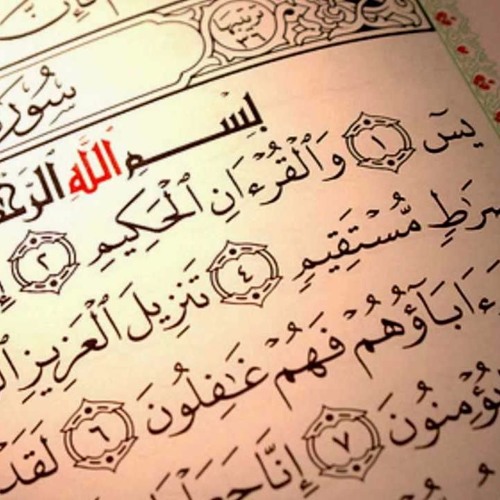 سُورَ
٣٦
بِسْمِ اللَّهِ الرَّحْ
يسٓ ١ وَٱلْقُرْءَانِ ٱلْحَكِيمِ ٢
صِرَٰطٍ مُّسْتَقِيمٍ ٤ تَنزِيلَ ٱلْعَزِيزِ
ءَابَآؤُهُمْ فَهُمْ غَٰفِلُونَ ٦ لَقَدْ
يُؤْمِنُونَ ٧ إِنَّا جَعَلْنَا